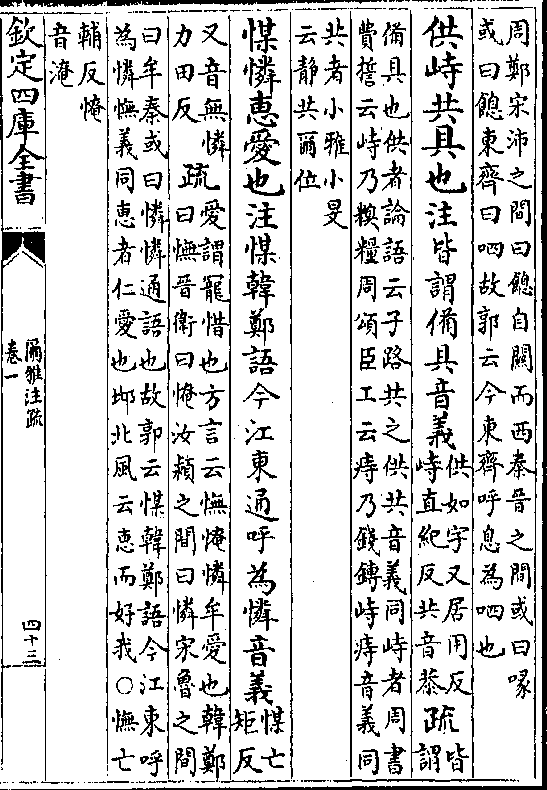 周鄭宋沛之間曰䭒自關而西秦晉之間或曰喙
或曰䭒東齊曰呬故郭云今東齊呼息為呬也
供峙共具也注皆謂備具音義供如字又居用反
峙直紀反共音恭疏皆謂
備具也供者論語云子路共之供共音義同峙者周書
費誓云峙乃糗糧周頌臣工云庤乃錢鎛峙庤音義同
共者小雅小旻
云靜共爾位
㤿憐惠愛也注㤿韓鄭語今江東通呼為憐音義㤿亡
矩反
又音無憐
力田反疏愛謂寵惜也方言云憮㤿憐牟愛也韓鄭
曰憮晉衛曰㤿汝潁之間曰憐宋魯之間
曰牟秦或曰憐憐通語也故郭云㤿韓鄭語今江東呼
為憐憮義同惠者仁愛也邶北風云惠而好我○憮亡
輔反㤿
音淹
欽定四庫全書
爾雅注疏
卷一
四十三